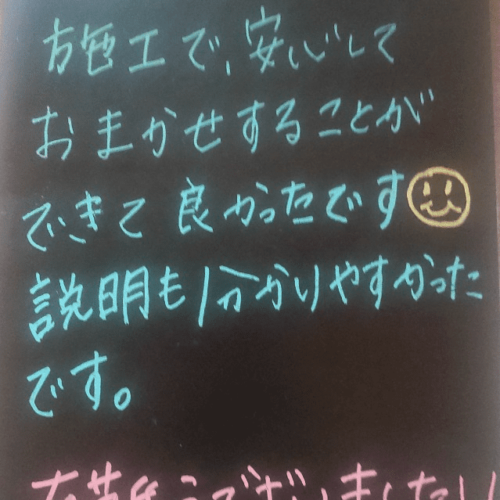 施工で、安心して
おまかせすることが
できて良かったです
説明も分かりやすかった
です。